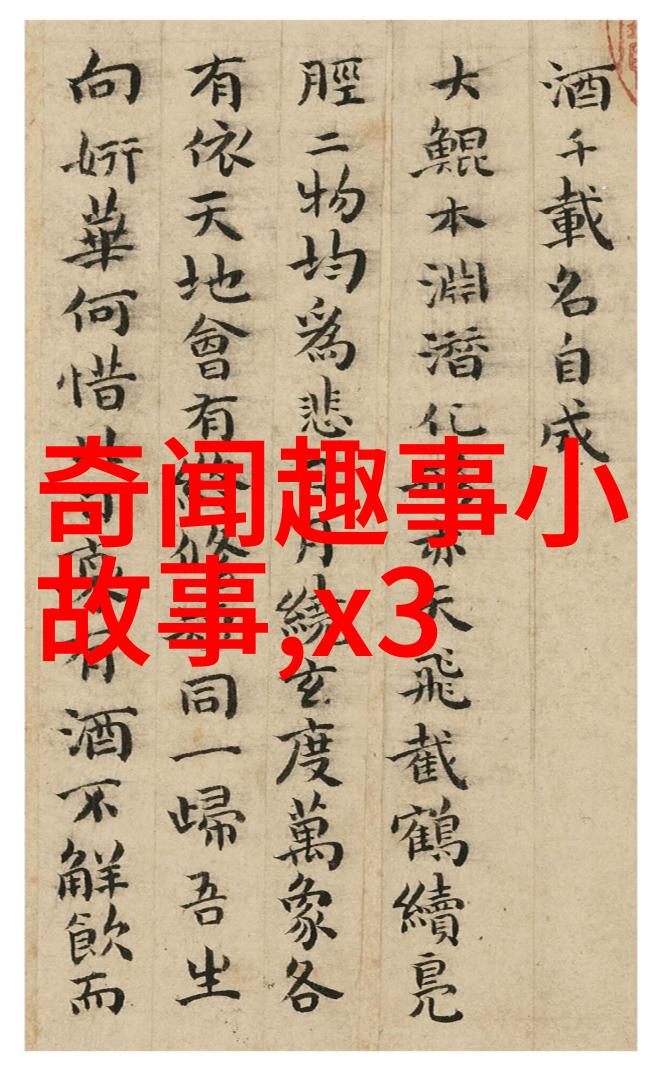 酒千載名自成
大鯤本淵潛化天飛截鶴續鳧
脛二物均爲悲月繞玄度萬象各
有依天地會有同一歸吾生
向妍華何惜有酒不解飲而
奇闻趣事小
故事,x3